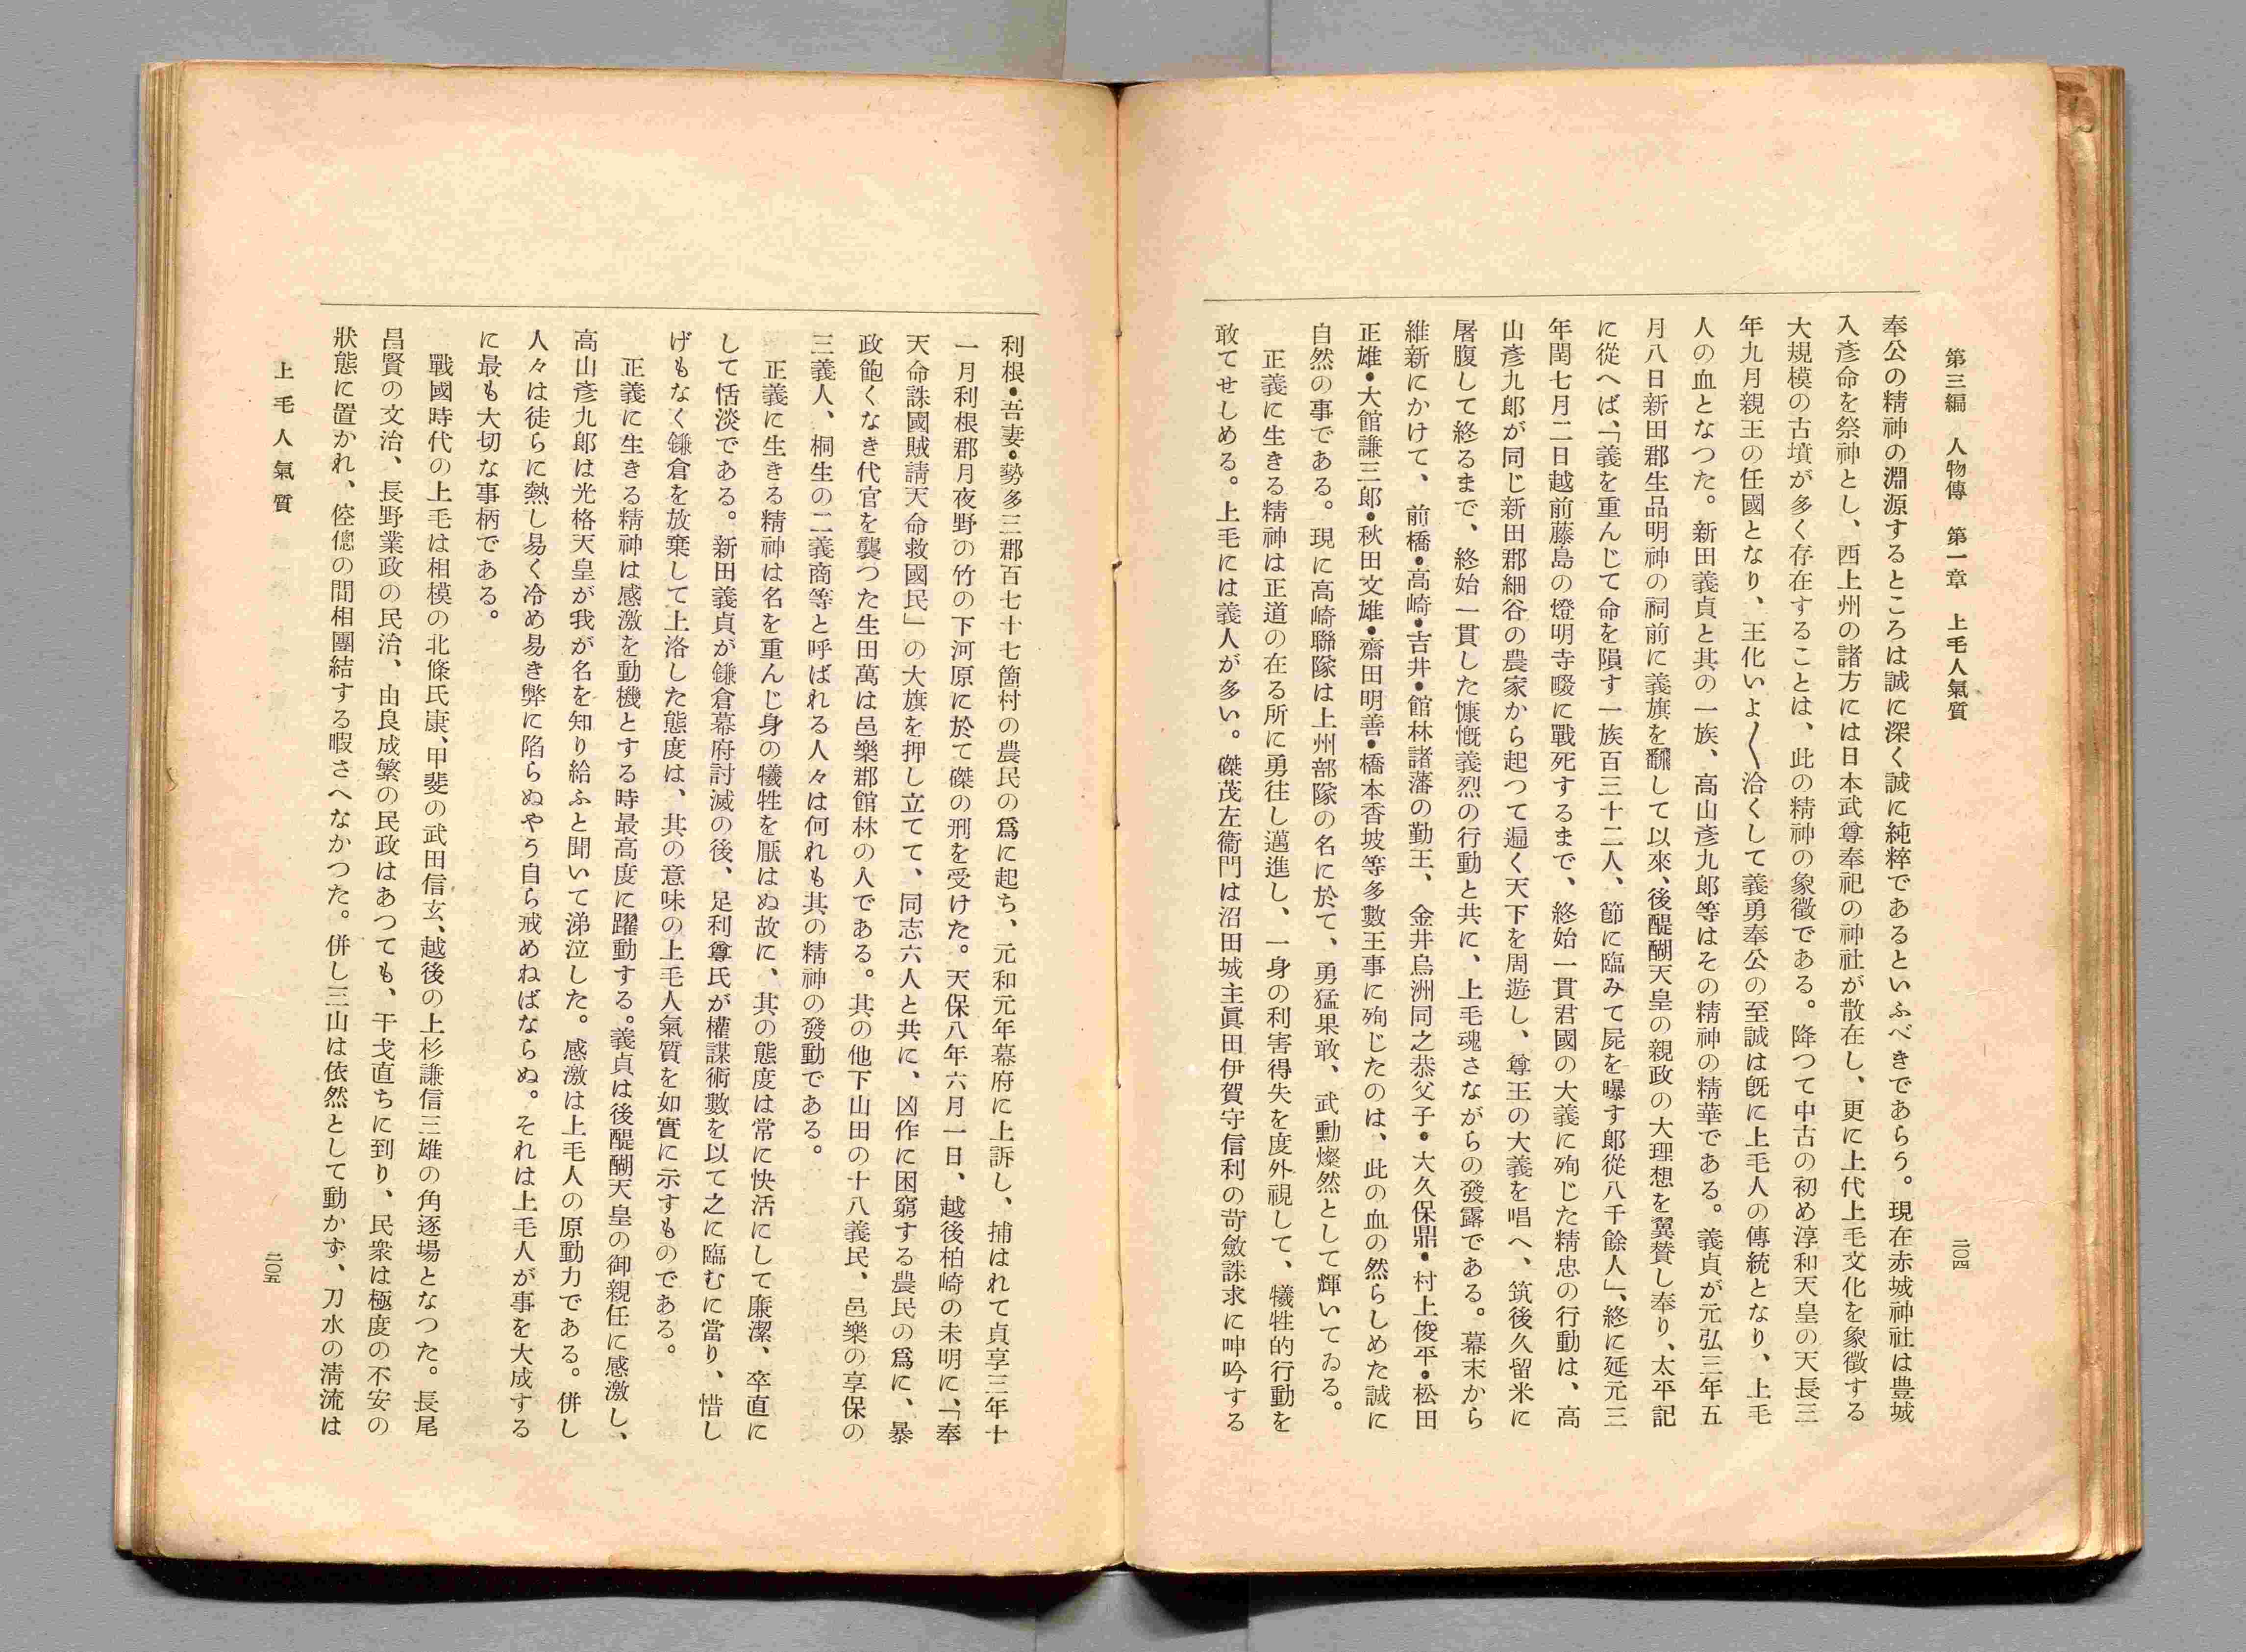 第三編　人物傳　第一章　上毛人氣質
二〇四
奉公の精神の淵源するところは誠に深く誠に純粹であるといふべきであらう。現在赤城神社は豊城
入彥命を祭神とし、西上州の諸方には日本武尊奉祀の神社が散在し、更に上代上毛文化を象徵する
大規模の古墳が多く存在することは、此の精神の象徵である。降つて中古の初め淳和天皇の天長三
年九月親王の任國となり、王化いよ〳〵洽くして義勇奉公の至誠は旣に上毛人の傳統となり、上毛
人の血となつた。新田義貞と其の一族、高山彥九郞等はその精神の精華である。義貞が元弘三年五
月八日新田郡生品明神の祠前に義旗を飜して以來、後醍醐天皇の親政の大理想を翼賛し奉り、太平記
に從へば、「義を重んじて命を隕す一族百三十二人、節に臨みて屍を曝す郞從八千餘人」、終に延元三
年閏七月二日越前藤島の燈明寺畷に戰死するまで、終始一貫君國の大義に殉じた精忠の行動は、高
山彥九郞が同じ新田郡細谷の農家から起つて遍く天下を周遊し、尊王の大義を唱へ、筑後久留米に
屠腹して終るまで、終始一貫した慷慨義烈の行動と共に、上毛魂さながらの發露である。幕末から
維新にかけて、前橋・高崎・吉井・館林諸藩の勤王、金井烏洲同之恭父子・大久保鼎・村上俊平・松田
正雄・大館謙三郞・秋田文雄・齋田明善・橋本香坡等多數王事に殉じたのは、此の血の然らしめた誠に
自然の事である。現に高崎聯隊は上州部隊の名に於て、勇猛果敢、武勳燦然として輝いてゐる。
正義に生きる精神は正道の在る所に勇往し邁進し、一身の利害得失を度外視して、犧牲的行動を
敢てせしめる。上毛には義人が多い。磔茂左衞門は沼田城主眞田伊賀守信利の苛斂誅求に呻吟する
利根・吾妻・勢多三郡百七十七箇村の農民の爲に起ち、元和元年幕府に上訴し、捕はれて貞享三年十
一月利根郡月夜野の竹の下河原に於て磔の刑を受けた。天保八年六月一日、越後柏崎の未明に、「奉
天命誅國賊請天命救國民」の大旗を押し立てて、同志六人と共に、凶作に困窮する農民の爲に、暴
政飽くなき代官を襲つた生田萬は邑樂郡館林の人である。其の他下山田の十八義民、邑樂の享保の
三義人、桐生の二義商等と呼ばれる人々は何れも其の精神の發動である。
正義に生きる精神は名を重んじ身の犧牲を厭はぬ故に、其の態度は常に快活にして廉潔、卒直に
して恬淡である。新田義貞が鎌倉幕府討滅の後、足利尊氏が權謀術數を以て之に臨むに當り、惜し
げもなく鎌倉を放棄して上洛した態度は、其の意味の上毛人氣質を如實に示すものである。
正義に生きる精神は感激を動機とする時最高度に躍動する。義貞は後醍醐天皇の御親任に感激し、
高山彥九郞は光格天皇が我が名を知り給ふと聞いて涕泣した。感激は上毛人の原動力である。併し
人々は徒らに熱し易く冷め易き弊に陷らぬやう自ら戒めねばならぬ。それは上毛人が事を大成する
に最も大切な事柄である。
戰國時代の上毛は相模の北條氏康、甲斐の武田信玄、越後の上杉謙信三雄の角逐場となつた。長尾
昌賢の文治、長野業政の民治、由良成繁の民政はあつても、干戈直ちに到り、民衆は極度の不安の
狀態に置かれ、倥偬の間相團結する暇さへなかつた。併し三山は依然として動かず、刀水の淸流は
上毛人氣質
二〇五